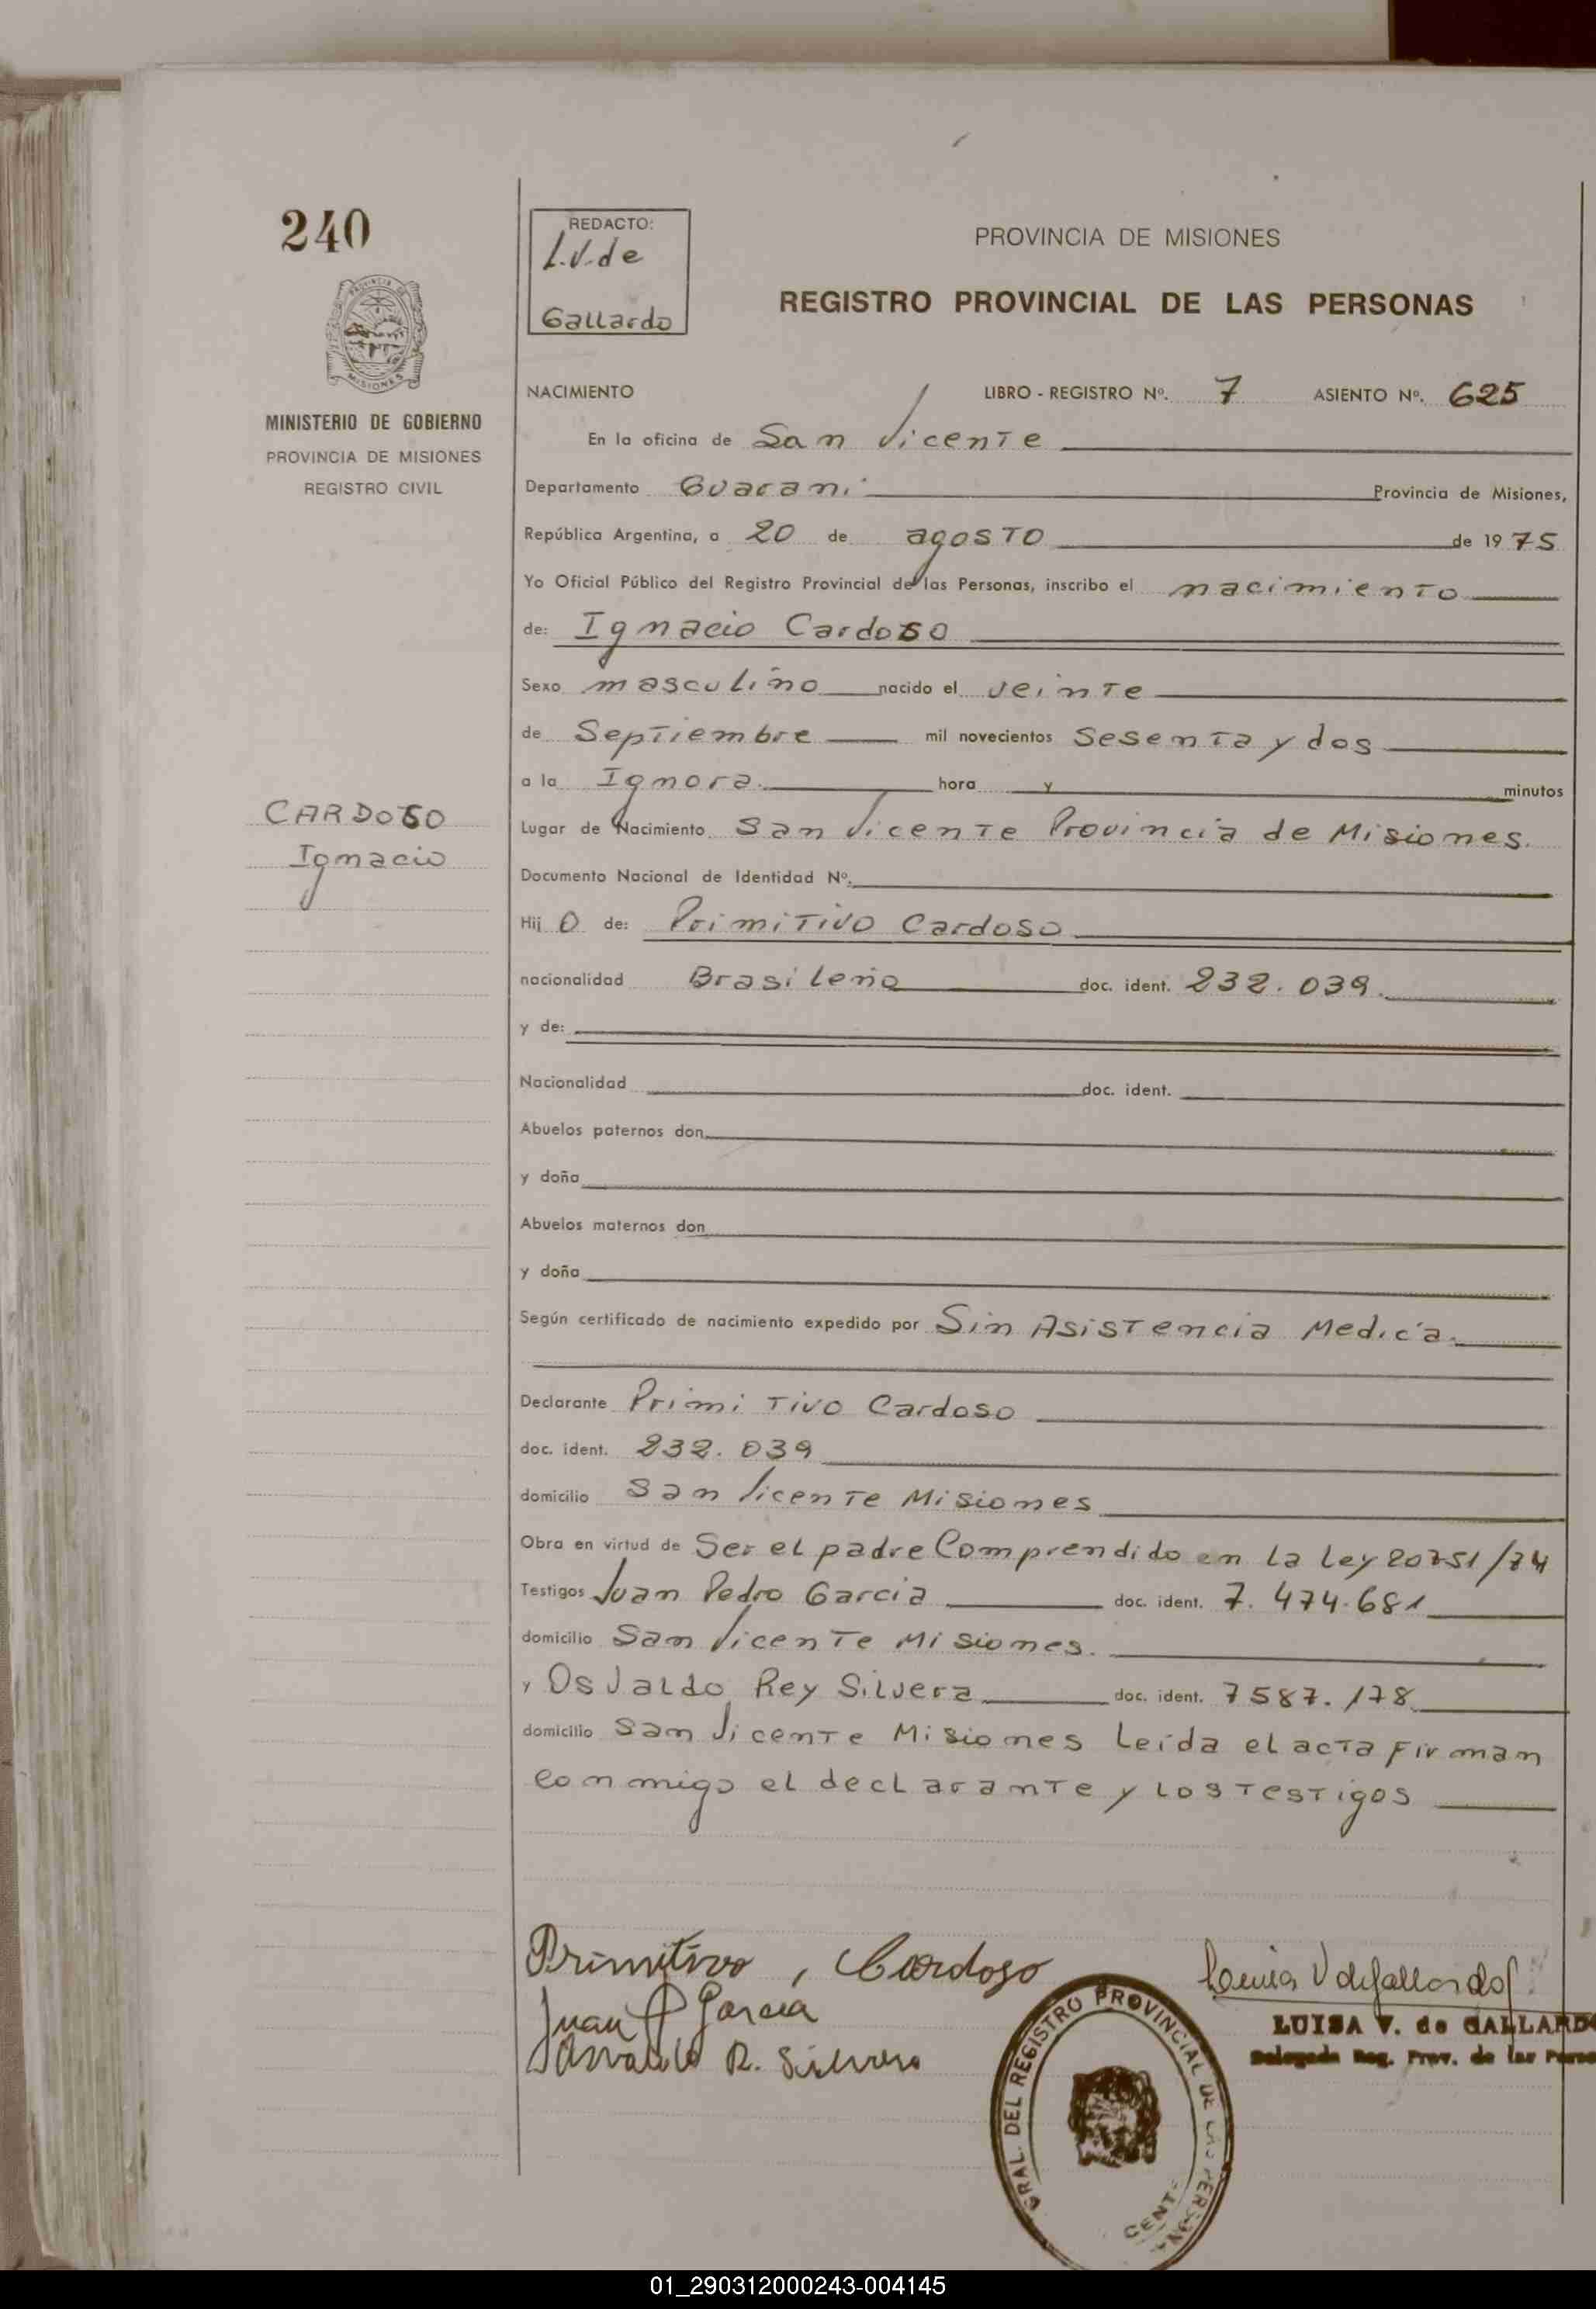 240
REDACTO:
L.V. de
Gallardo
PROVINCIA DE MISIONES
REGISTRO PROVINCIAL DE LAS PERSONAS
PROVINCIA DE
MISIONES
MINISTERIO DE GOBIERNO
PROVINCIA DE MISIONES
REGISTRO CIVIL
CARDOSO
Ignacio
NACIMIENTO LIBRO - REGISTRO Nº. 7 ASIENTO Nº. 625
En la oficina de San Vicente
Departamento Guarani Provincia de Misiones,
República Argentina, a 20 de agosto de 1975
Yo Oficial Público del Registro Provincial de las Personas, inscribo el nacimiento
de: Ignacio Cardoso
Sexo masculino nacido el veinte
de Septiembre mil novecientos Sesenta y dos
a la Ignora. hora y minutos
Lugar de Nacimiento San Vicente Provincia de Misiones.
Documento Nacional de Identidad Nº.
Hij o de: Primitivo Cardoso
nacionalidad Brasileña doc. ident. 232.039.
y de:
Nacionalidad doc. ident.
Abuelos paternos don
y doña
Abuelos maternos don
y doña
Según certificado de nacimiento expedido por Sin Asistencia Medica.
Declarante Primitivo Cardoso
doc. ident. 232.039
domicilio San Vicente Misiones
Obra en virtud de Ser el padre Comprendido en la Ley 20751/74
Testigos Juan Pedro Garcia doc. ident. 7.474.681
domicilio San Vicente Misiones.
y Osvaldo Rey Silvera doc. ident. 7587.178
domicilio San Vicente Misiones Leída el acta Firman
conmigo el declarante y los Testigos
Primitivo, Cardoso
Juan P Garcia
Osvaldo R. Silvera
Luisa V de Gallardo
LUISA V. de GALLARD
Delegada Reg. Prov. de las Perso
GRAL. DEL REGISTRO PROVINCIAL DE LAS PERSONA
CENTE
01_290312000243-004145